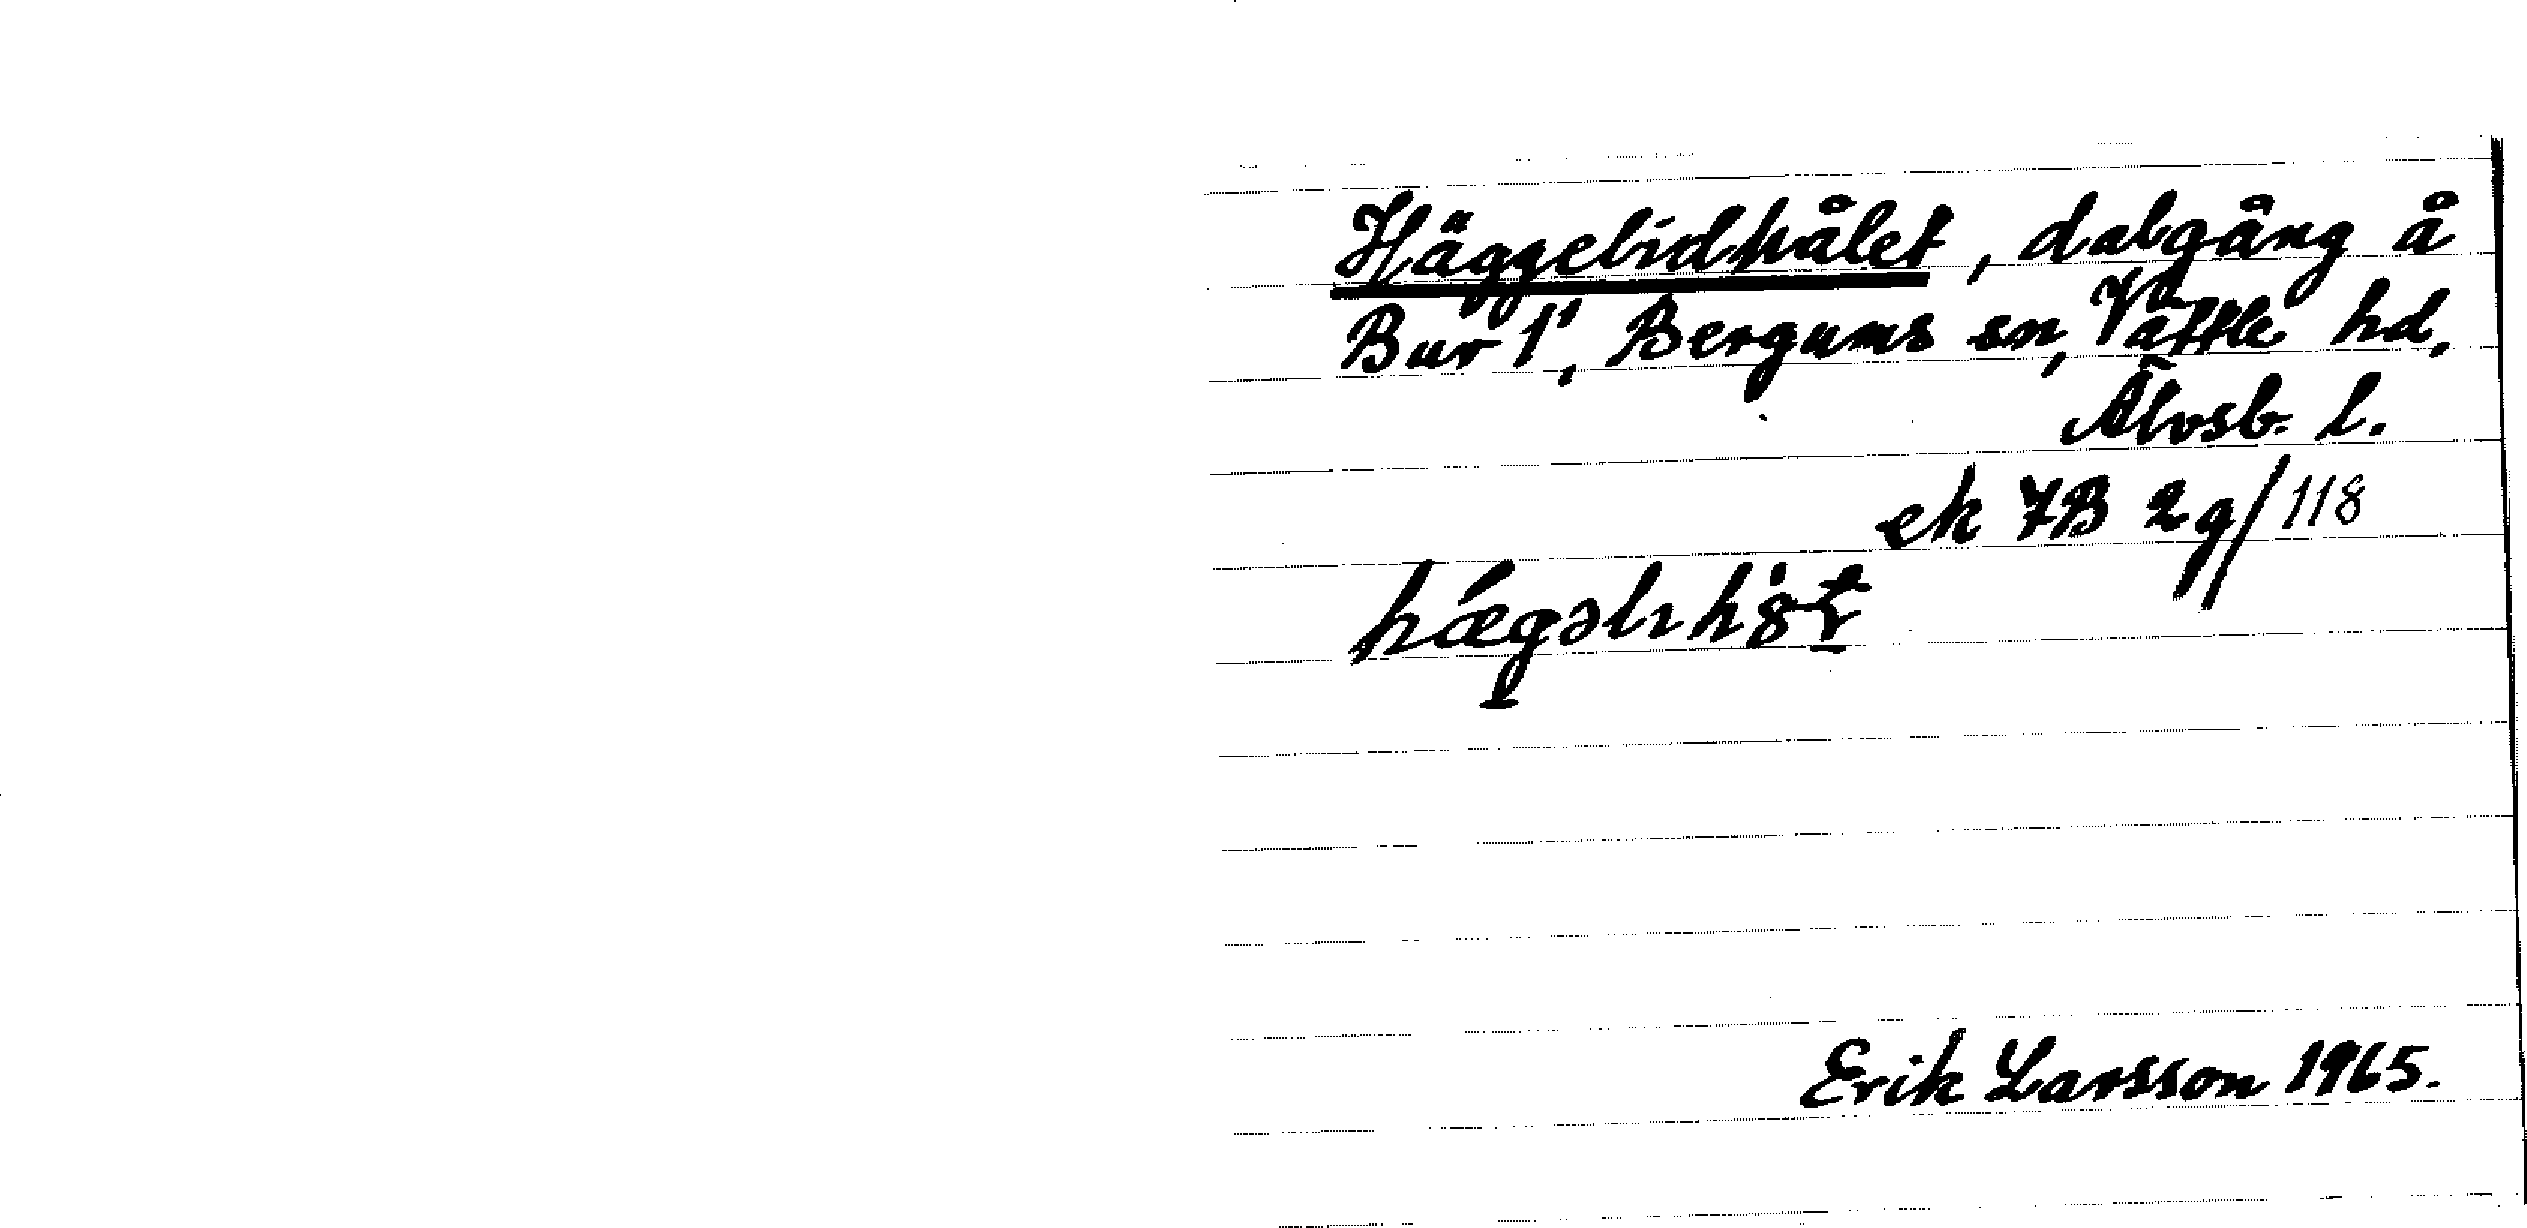 Häggelidhålet, dalgång å
Bur 1¹, Bergums sn, Vättle hd,
Älvsb. l.
ek 7B 2g/118
Erik Larsson 1965.